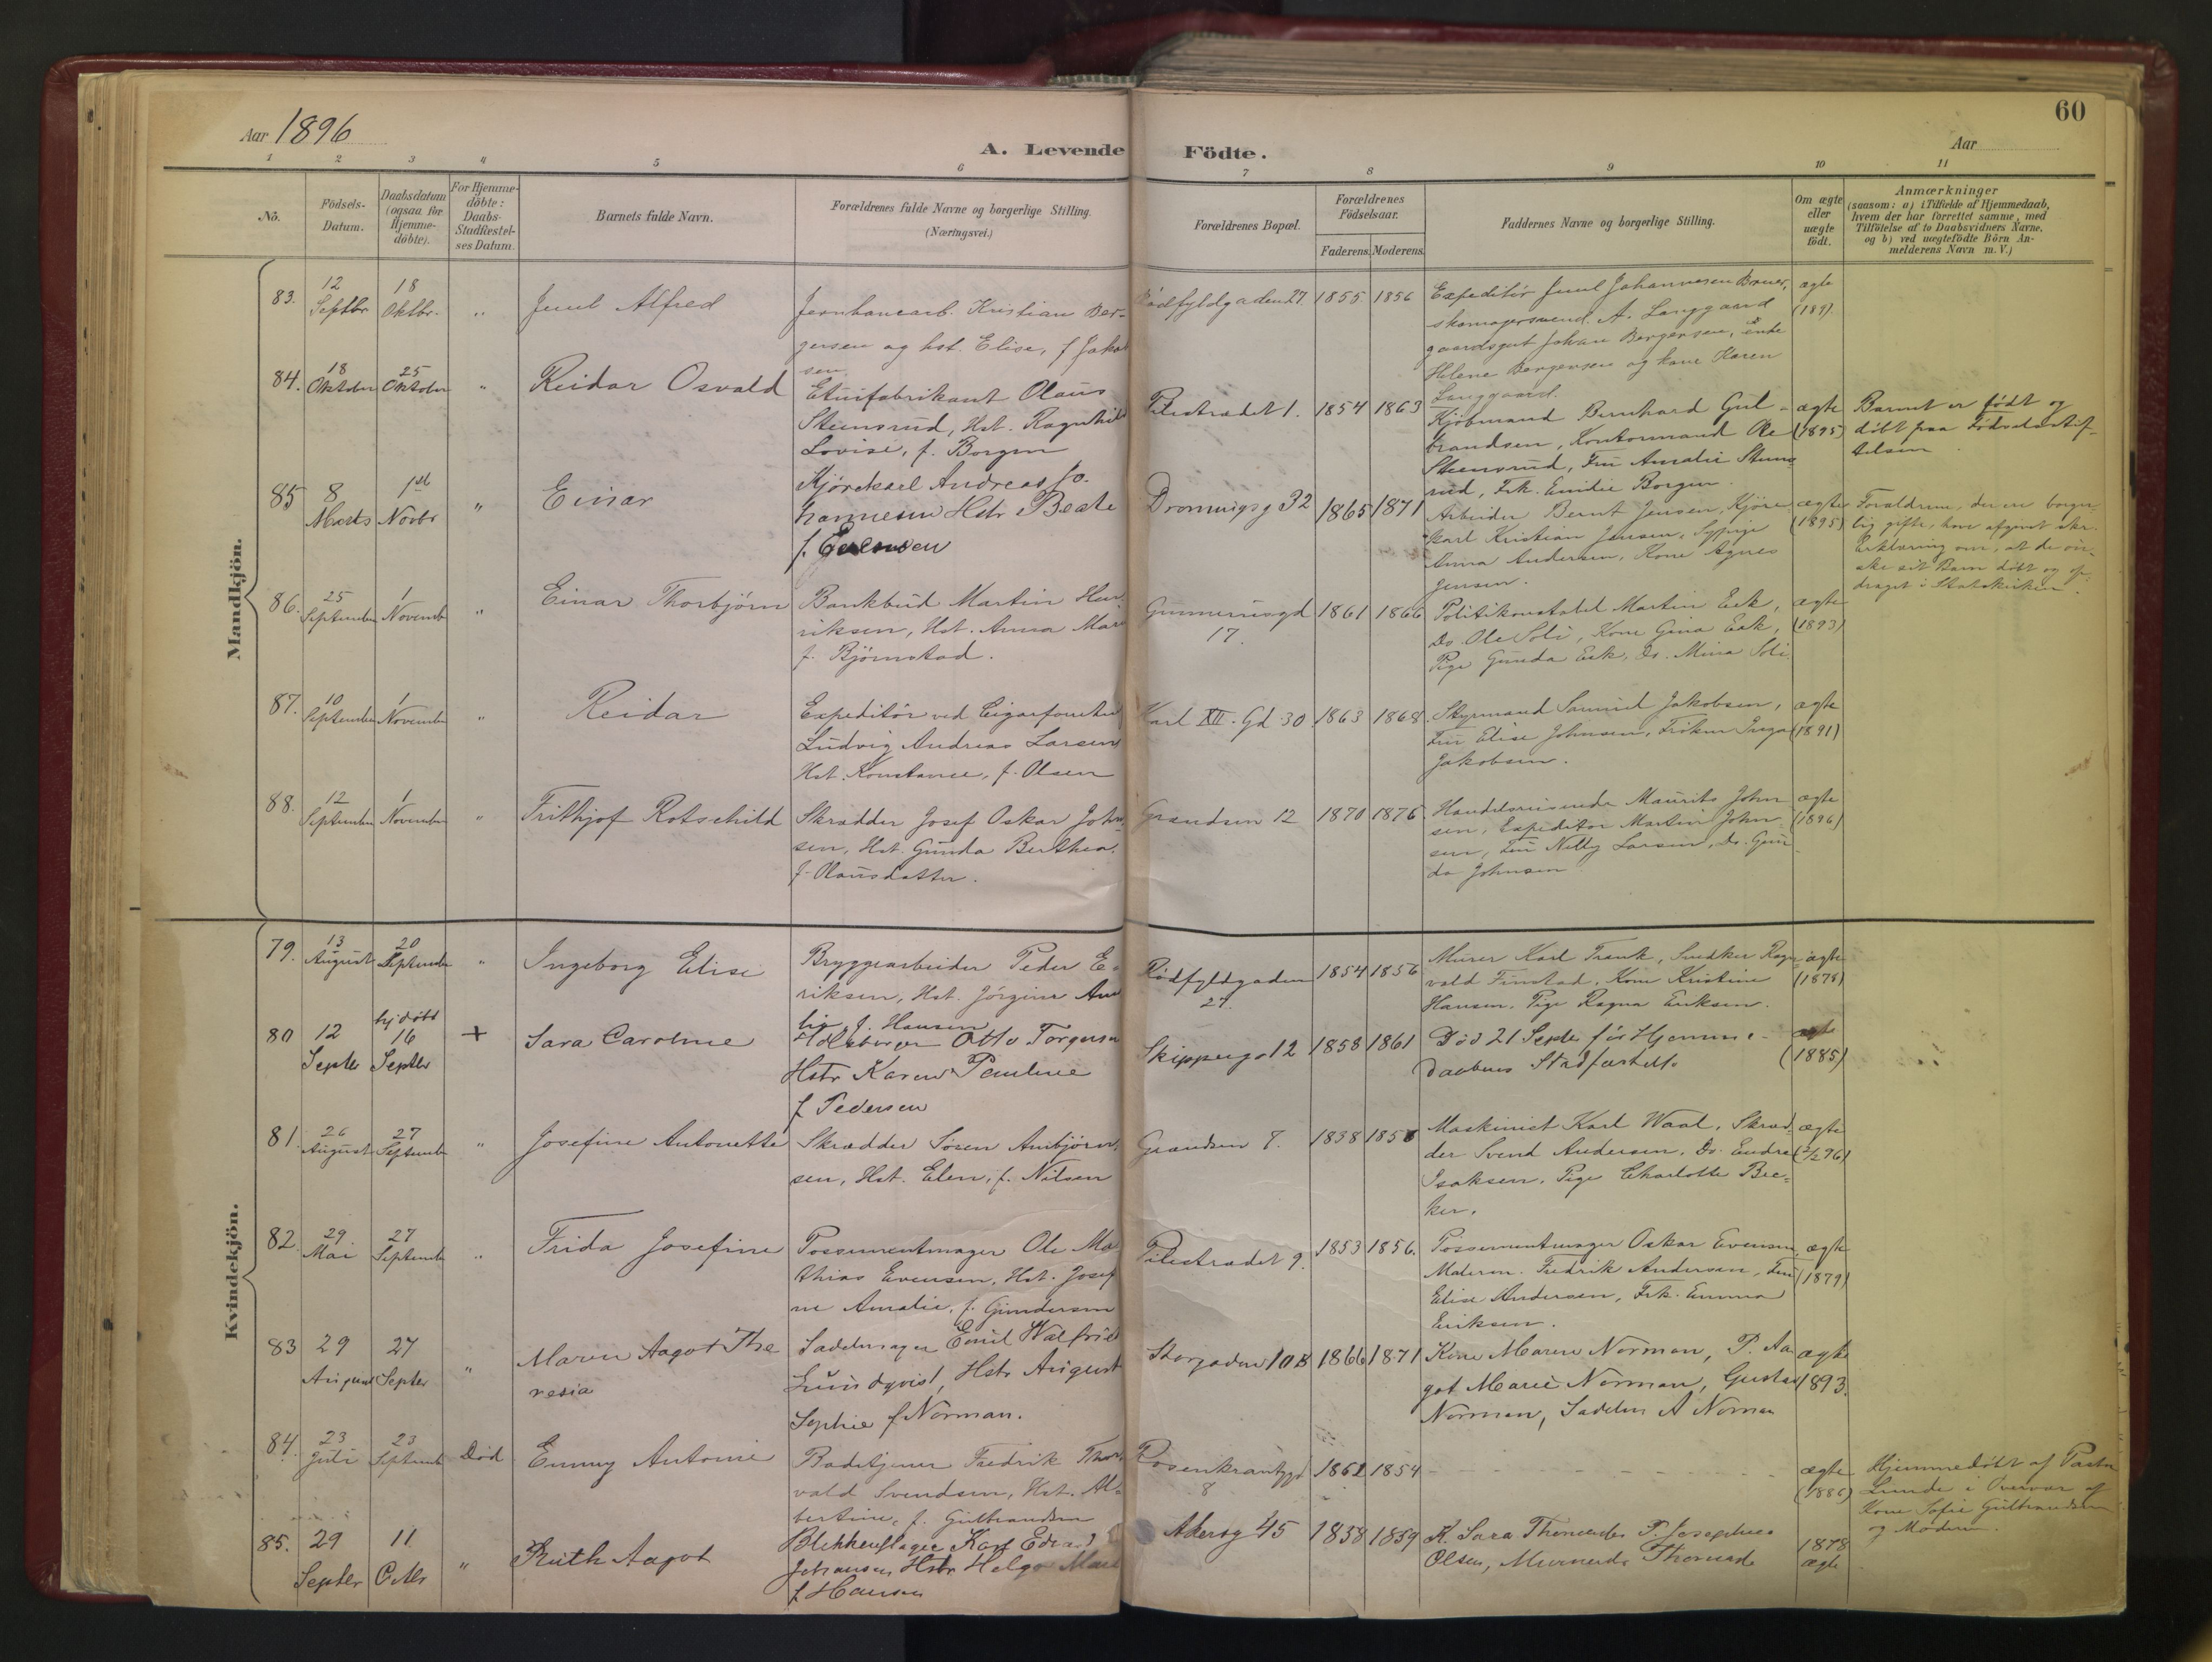 60
Aar 1896
Aar
A. Levende Födte.
1 2 3 4 5 6 7 8 9 10 11
No.
Födsels-
Datum.
Daabsdatum
(ogsaa for
Hjemme-
döbte).
For Hjemme-
döbte:
Daabs-
Stadfæstel-
ses Datum.
Barnets fulde Navn.
Forældrenes fulde Navne og borgerlige Stilling.
(Næringsvei.)
Forældrenes Bopæl.
Forældrenes
Födselsaar.
Faderens. Moderens.
Faddernes Navne og borgerlige Stilling.
Om ægte
eller
uægte
födt.
Anmærkninger
(saasom: a) i Tilfælde af Hjemmedaab,
hvem der har forrettet samme, med
Tilföielse af to Daabsvidners Navne,
og b) ved uægtefödte Börn An-
melderens Navn m. V.)
Mandkjön.
83.
12
Septbr
18
Oktbr.
"
Juul Alfred
Jernbanearb. Kristian Ber-
gersen og hst. Elise, f Jakob
sen.
Rødfyldgaden 27.
1855 1856
Expeditör Juul Johannesen Bruer,
skomagersvend A. Langgaard
gaardsgut Johan Bergersen, enke
Helene Bergersen og kone Karen
Langgaard.
ægte
84.
18
Oktober
25
Oktober
"
Reidar Osvald
Etuifabrikant Olaus
Steensrud, Hst. Ragnhild
Lovise, f. Borgen
Pilestrædet 1.
1854 1863
Kjöbmand Bernhard Gul-
brandsen, Kontormand Ole
Steensrud, Fru Amalie Steens
rud, Frk. Emilie Borgen.
ægte
(1895)
Barnet er födt og
döbt paa Födselsstif-
telsen
85
8
Marts
1st
Novbr
"
Einar
Kjörekarl Andreas Jo-
hannesen Hstr Beate
f.
Dronningsg 32
1865 1871
Arbeider Bernt Jensen, Kjöre-
karl Kristian Jensen, Sypige
Anna Andersen, Kone Agnes
Jensen.
ægte
(1895)
Foraldrene, der ere borger-
lig gifte, have afgivet skr.
Erklæring om, at de ön-
ske sit Barn döbt og op-
draget i Statskirken.
86.
25
September
1
November
"
Einar Thorbjörn
Bankbud Martin Hen
riksen, Hst. Anna Mari
f. Björnstad.
Gunnerusgd
17.
1861 1866
Politikonstabel Martin Eek,
Do. Ole Soli, Kone Gina Eek,
Pige Gunda Eek, Do. Mina Soli.
ægte
(1893)
87.
10
September
1
November
"
Reidar
Expeditör ved Cigarforretn
Ludvig Andreas Larsen
Hst. Konstanse, f. Olsen
Karl XII. Gd 30
1863 1868
Styrmand Samuel Jakobsen,
Fru Elise Johnsen, Fröken Inga
Jakobsen.
ægte
(1891)
88.
12
September
1
November
"
Frithjof Rotschild
Skrædder Josef Oskar John
sen, Hst. Gunda Berthea.
f. Olausdatter.
Grændsen 12
1870 1876
Handelsreisende Maurits John
sen, Expeditör Martin John
sen, Fru Nelly Larsen, Do. Gun
da Johnsen
ægte
(1896)
Kvindekjön.
79.
13
August
20
September
"
Ingeborg Elise
Bryggearbeider Peder E-
riksen, Hst. Jörgine Am
lie f. Hansen
Rødfyldgaden
27.
1854 1856
Murer Karl Trank, Snedker Ragn
vald Finstad, Kone Kristine
Hansen, Pige Ragna Eriksen.
ægte
(1878)
80
12
Septbr
hjdöbt
16
Septbr
+
Sara Caroline
Otto Torgersen
Hstr Karen Pauline
f Pedersen
Skipperg 12
1858 1861
Död 21 Septbr för Hjemme-
daabens Stadfæstelse
ægte
(1885)
81.
26
August
27
September
"
Josefine Antonette
Skrædder Sören Ambjörn-
sen, Hst. Elen, f. Nilsen
Grændsen 7.
1838 1858
Maskinist Karl Waal, Skræd-
der Svend Andersen, Do. Endre
Isaksen, Pige Charlotte Bec-
ker.
ægte
82.
29
Mai
27
September
"
Frida Josefine
Possementmager Ole Ma
thias Evensen, Hst. Josef
ne Amalie, f. Gundersen
Pilestrædet 9.
1853 1856.
Possementmager Oskar Evensen
Malerm. Fredrik Andersen, Fru
Elise Andersen, Frk. Emma
Eriksen.
ægte
(1879)
83
29
August
27
Septbr
"
Maren Aagot The
resia
Sadelmager Emil Walfrid
Lundqvist, Hstr August
Sophie f Norman.
Storgaden 10B
1866 1871
Kone Maren Norman, P. Aa
got Marie Norman, Gustav
Norman, Sadelm A Norman
ægte
1893.
84.
23
Juli
23
Septemb
Död
Emmy Antonie
Badetjener Fredrik Thor
vald Svendsen, Hst. Al-
bertine, f. Gulbrandsen
Rosenkrantzgd
8
1862 1854
ægte
(1886)
Hjemmedöbt af Pastor
Lunde i Overvær af
Kone Sofie Gulbrandsen
og Moderen.
85.
29
Septbr
11
Octbr
"
Ruth Aagot
Blikkenslager Karl Edvard
Johansen Hstr Helga Marie
f Hansen
Akersg 45
1838 1859
K. Sara P. Josephine
Olsen,
1878
ægte